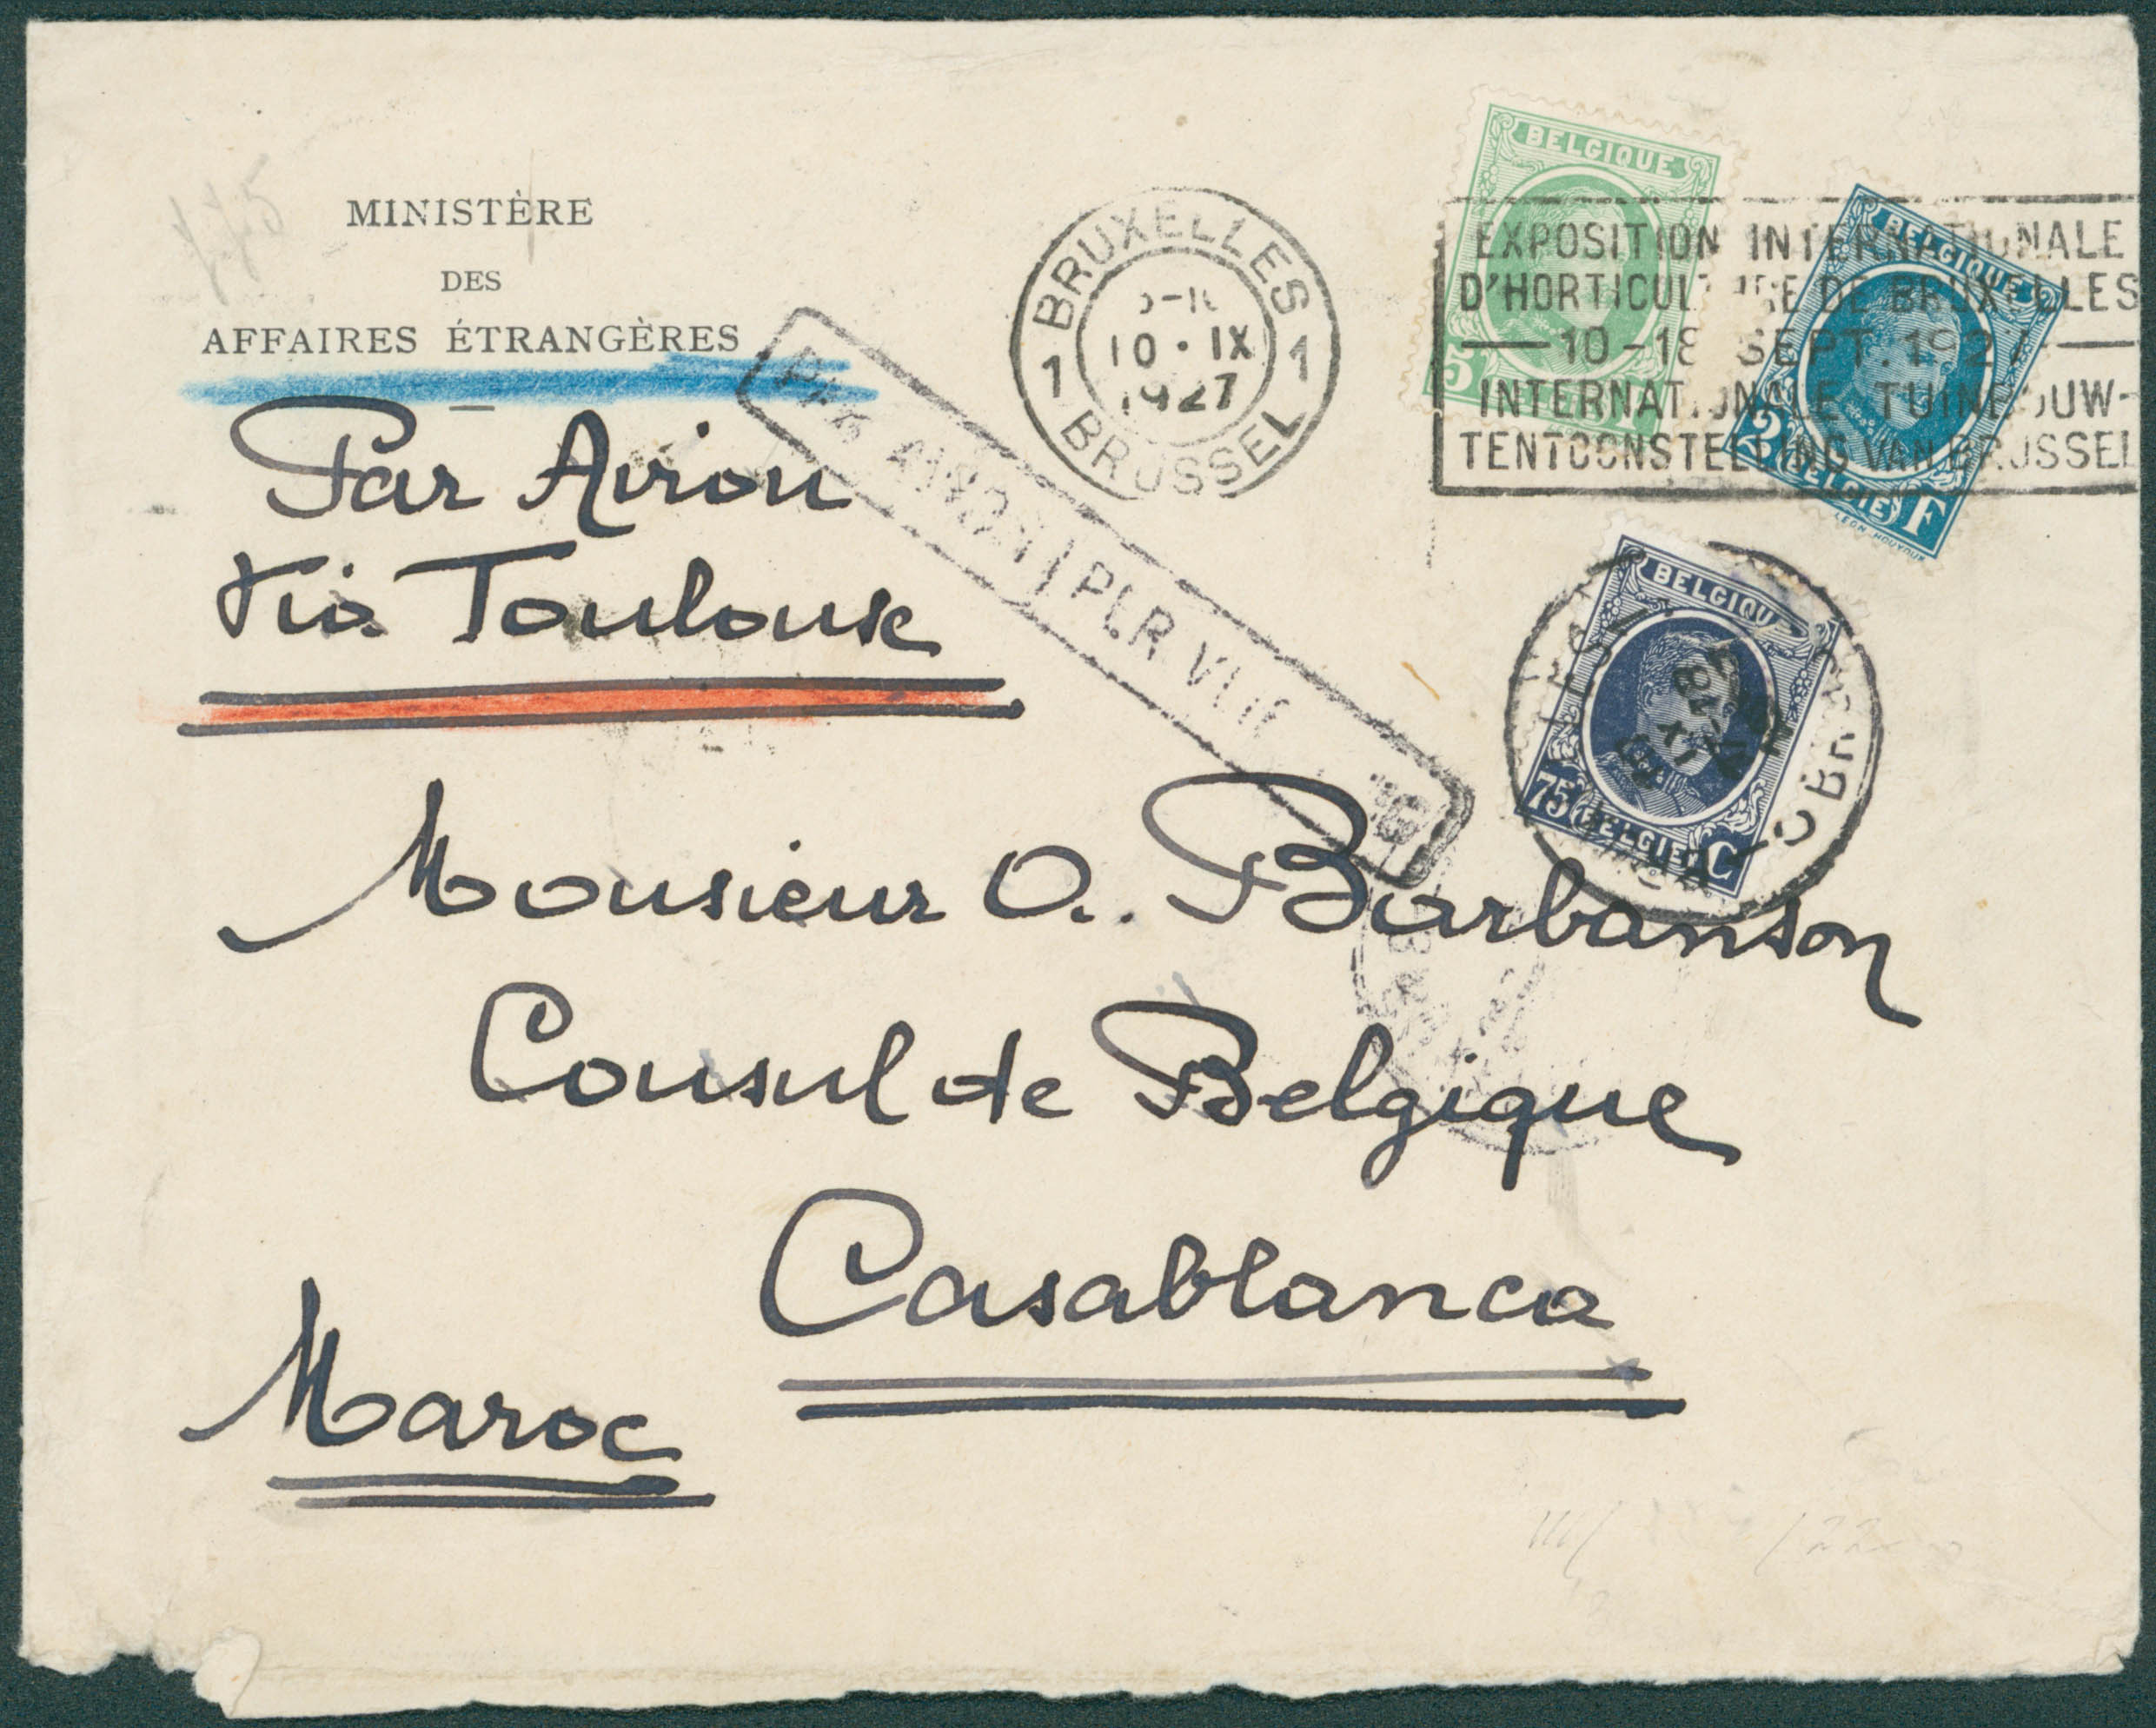 MINISTÈRE
DES
AFFAIRES ÉTRANGÈRES
Par Avion
Via Toulouse
BRUXELLES
1 1
10 · IX
1927
BRUSSEL
EXPOSITION INTERNATIONALE
D'HORTICULTURE DE BRUXELLES
10-18 SEPT. 1927
INTERNATIONALE TUINBOUW-
TENTOONSTELLING VAN BRUSSEL
BELGIQUE
5
BELGIQUE
2 BELGIË F
LEON HOUYOUX
BELGIQUE
75 BELGIË C
PAR AVION PER
Monsieur O. Barbanson
Consul de Belgique
Casablanca
Maroc